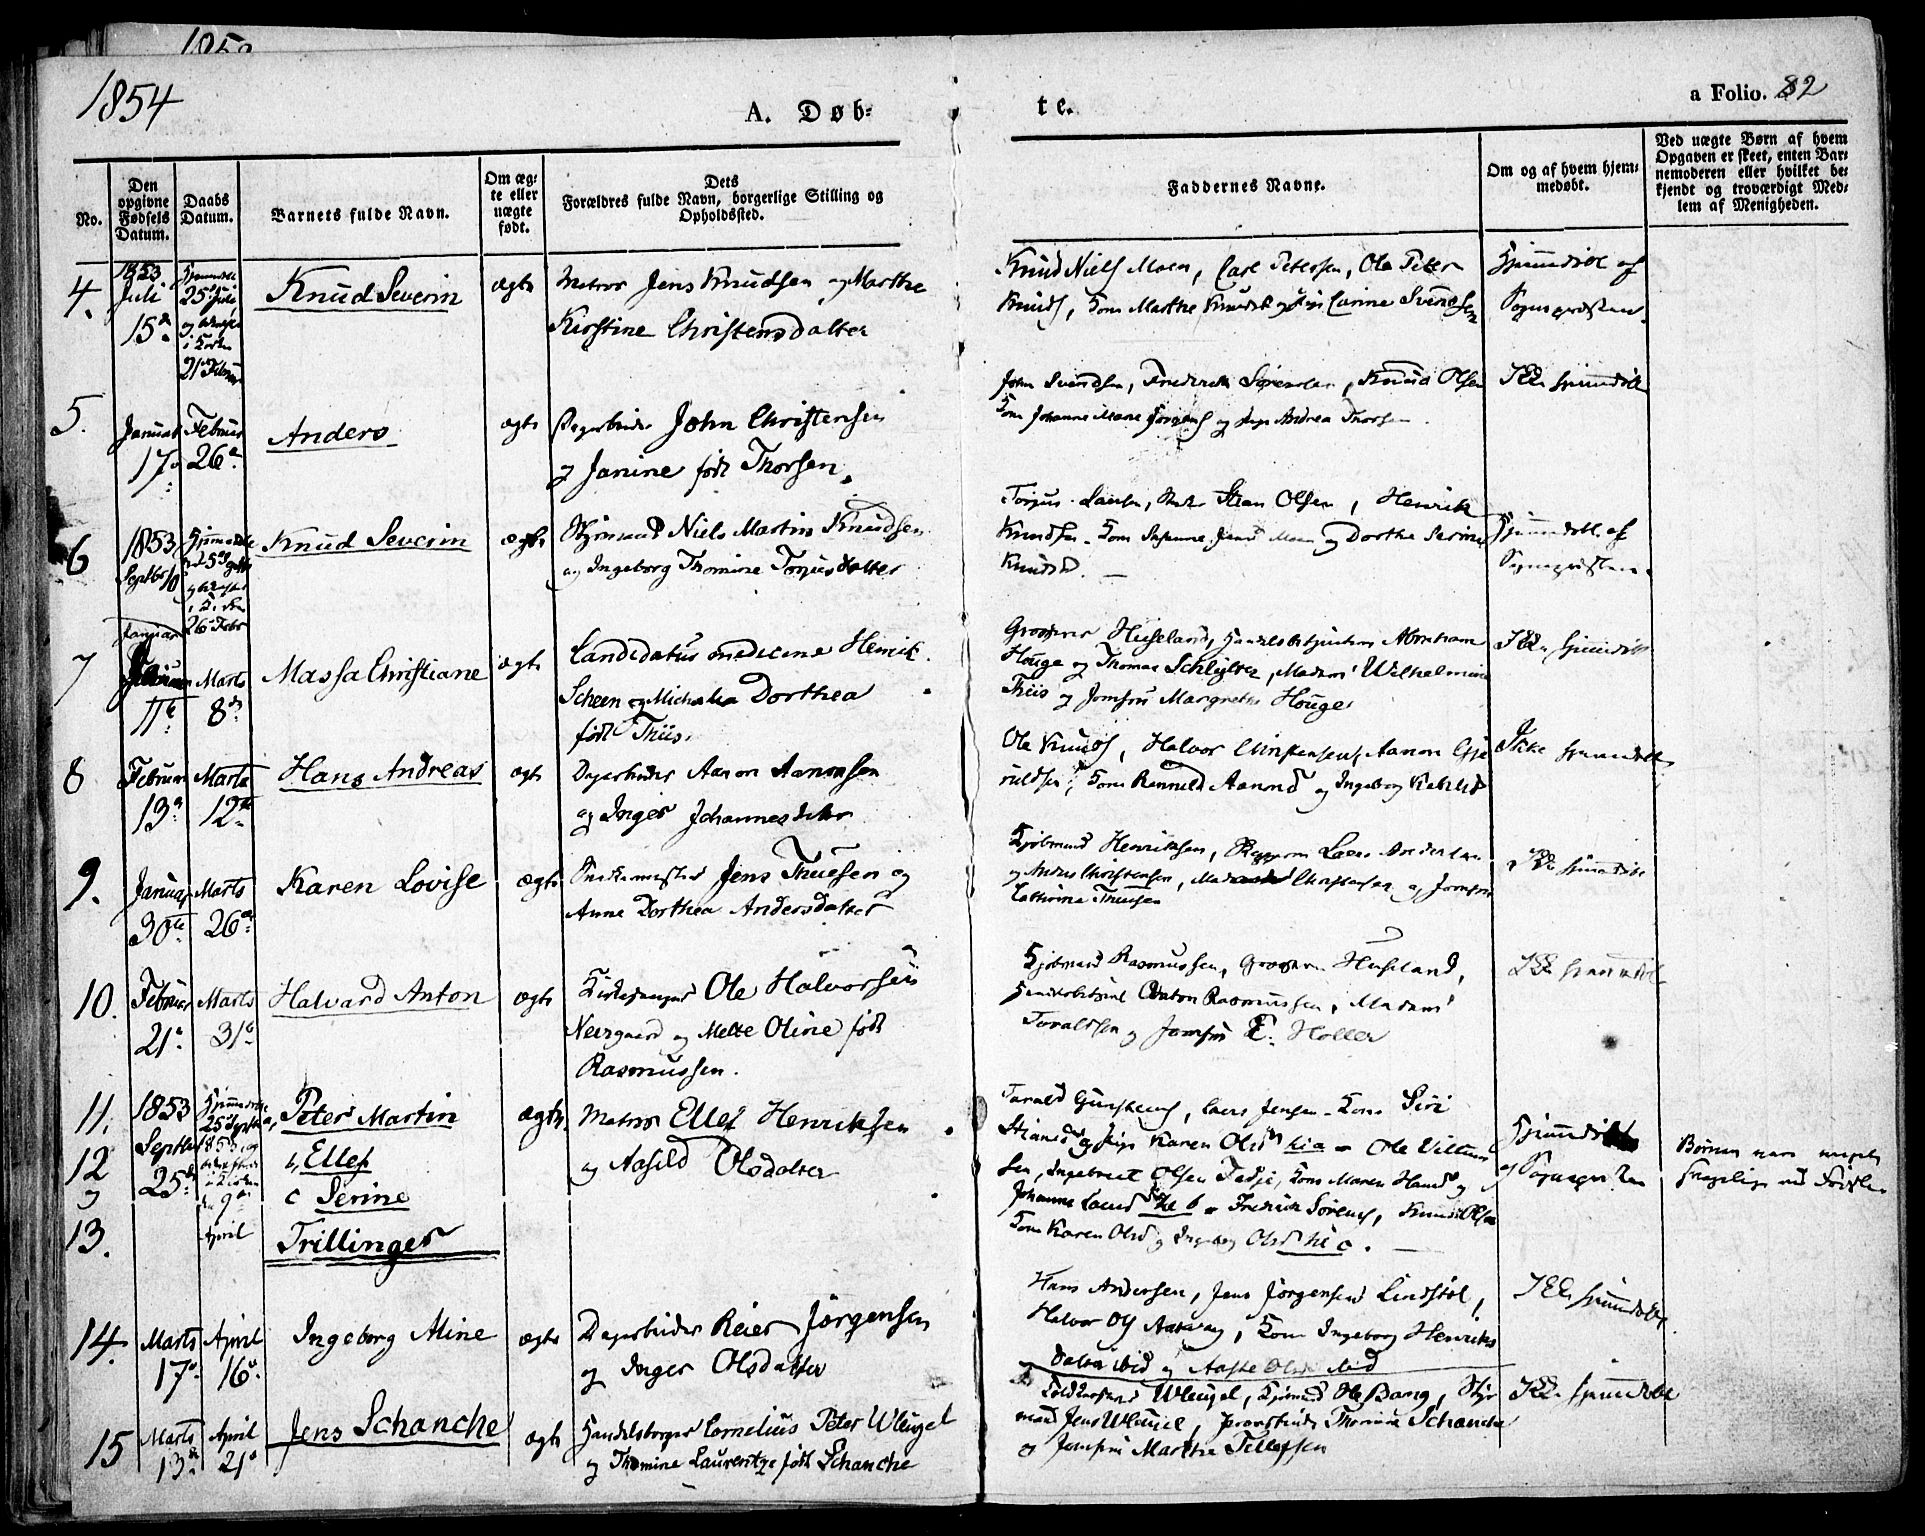 1854
A. Døb-
te.
a Folio. 82
No.
Den
opgivne
Fødsels
Datum.
Daabs
Datum.
Barnets fulde Navn.
Om æg-
te eller
uægte
født.
Dets
Forældres fulde Navn, borgerlige Stilling og
Opholdssted.
Faddernes Navne.
Om og af hvem hjem-
medøbt.
Ved uægte Børn af hvem
Opgaven er skeet, enten Bar-
nemoderen eller hvilket be-
kjendt og troværdigt Med-
lem af Menigheden.
4.
1853
Juli
15de
25de Juli
21 Februar
Knud Severin
ægte
Matros Jens Knudsen og Marthe
Kirstine Christensdatter
Knud Niels Moen, Carl Petersen, Ole Peter
Knuds, Kone Marthe Knudsd og Pige Carine Svendsen
Hjemmedøbt af
Sognepræsten.
5.
Januar
17.
Februar
26.
Anders
ægte
Dagarbeider John Christensen
og Janine født Thorsen.
John Svendsen, Frederik Sørensen, Knud Olsen
Kone Johanne Marie Jørgens og Pige Andrea Thorsen.
Ikke hjemmedøbt
6
1853
Septbr 10
26 Febr
Knud Severin
ægte
Styrmand Niels Martin Knudsen
og Ingeborg Thomine Torjusdatter
Torjus Larsen, Stian Olsen, Henrik
Knudsen. Kone Susanne Jensd Moen og Dorthe Serine
Knudsd.
Hjemmedøbt af
Sognepræsten.
7
Januar
11te
Marts
8de
Massa Christiane
ægte
Candidatus medicine Henrik
Scheen og Michaelia Dorthea
født Thiis.
Grosserer Huseland, Handelsbetjent Abraham
Houge og Thomas Schlytter, Madam Wilhelmine
Thiis og Jomfru Margrethe Houge
Ikke hjemmedøbt
8
Februar
13.
Marts
12te
Hans Andreas
ægte
Dagarbeider Aanon Aanonsen
og Inger Johannesdatter
Ole Knuds, Halvor Christensen, Aanon Gje
ruldsen, Kone Ranneld Aanonsd og Ingeborg
Ikke hjemmedøbt
9.
Januar
30te
Marts
26.
Karen Lovise
ægte
Snedkermester Jens Thuesen og
Anne Dorthea Andersdatter
Kjøbmand Henriksen, Lars
og Anders Christensen, Madam Christensen og Jomfru
Cathrine Thuesen
Ikke hjemmedøbt
10.
Februar
21.
Marts
31te
Halvard Anton
ægte
Kirkesanger Ole Halvorsen
Neergaard og Mette Oline født
Rasmussen.
Kjøbmand Rasmussen, Grosserer Huseland,
Handelsbetjent Anton Rasmussen, Madam
Taraldsen og Jomfru E. Holler
Ikke hjemmedøbt
11.
12
og
13.
1853
Septbr
25de
25 Septbr
1853, og
den 9de
April
a, Peter Martin
b, Ellef
c Serine
Trillinger
ægte
Matros Ellef Henriksen
og Aasild Olsdatter
Tarald Gunstens, Lars Jensen, Kone Siri
Stiansd og Pige Karen Olsd til a - Ole Villum
sen, Ingebreet Olsen Fadje, Kone Maren Hansd og
Johanne Larsd til b - Fredrick Sørens, Knud Olsen
Kone Karen Olsd og Ingeborg Olsd til c.
Hjemmedøbt
af Sognepræsten
Børnene vare meget
svagelige ved Fødslen
14.
Marts
17.
April
16.
Ingeborg Aline
ægte
Dagarbeider Reier Jörgensen
og Inger Olsdatter
Hans Andersen, Jens Jörgensen Lindstöl,
Halvor Ols, Kone Ingeborg Henriks
datter ibid og Aaste Olsd ibid
Ikke hjemmedøbt.
15
Marts
13de
April
21.
Jens Schanche
ægte
Handelsborger Cornelius Peter Wleugel
og Thomine Laurentze født Schanche
Toldkasserer Wleugel, Kjøbmand Ole Bang, Styr
mand Jens Wleugel, Thomine Schanche
og Jomfru Marthe Tellefsen
Ikke hjemmedøbt